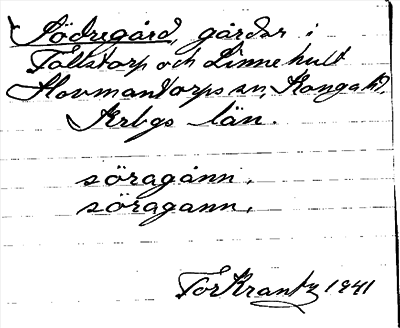 Södregård, gårdar i
Tollstorp och Linnehult
Hovmantorps sn, Konga hd,
Krbgs län.
söragånn,
söragann,
Tor Krantz 1941